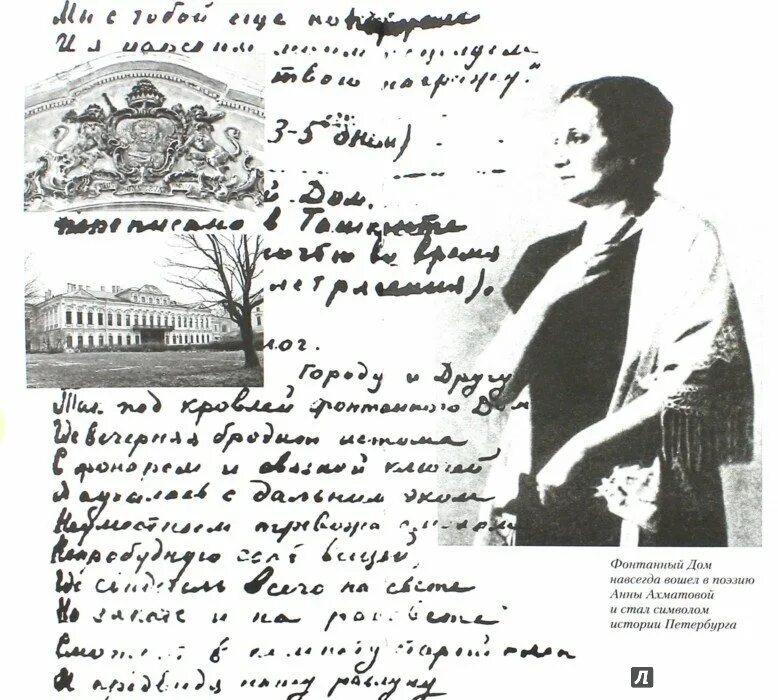 Мы с тобой еще
И я царским моим поцелуем
твою награжу."
3-5
й Дом.
переписано в Ташкенте
ночью во время
летрясения).
лог.
Городу и Другу
Так под кровлей фонтанного Дом
Где вечерняя бродит истома
С фонарем и связкой ключей
Я аукалась с дальним эхом
Неуместным тревожа смехом
Непробудную сонь вещей,
Где свидетель всего на свете
На закате и на рассвете
Смотрит в комнату старый клен
И предвидя нашу разлуку
Фонтанный Дом
навсегда вошел в поэзию
Анны Ахматовой
и стал символом
истории Петербурга
Л